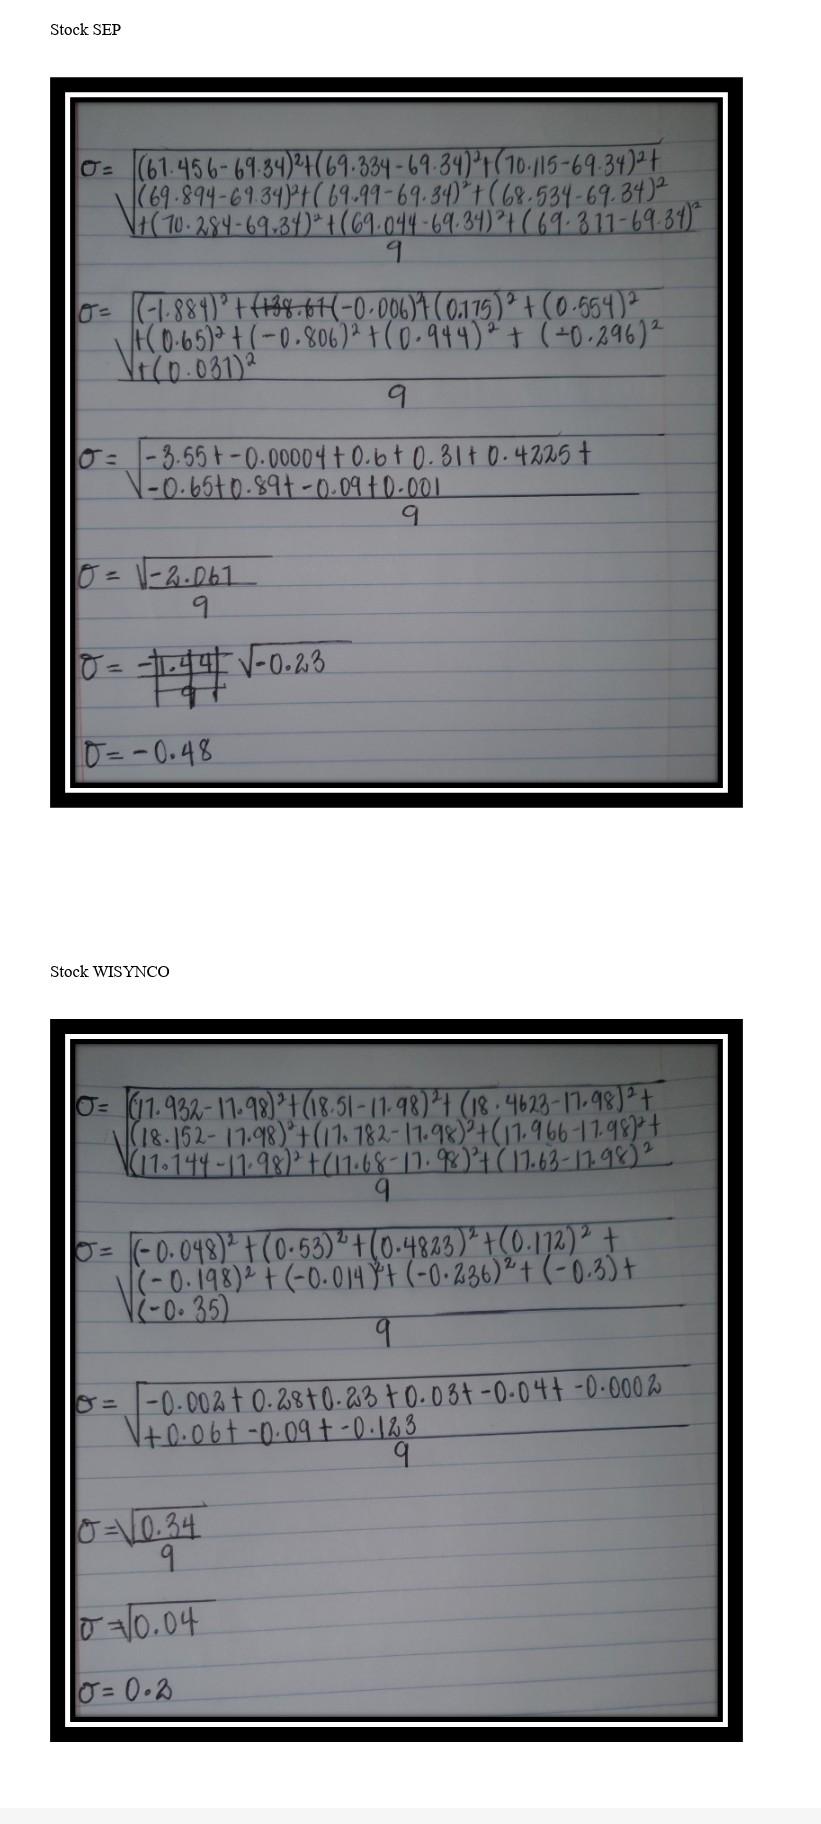 Stock SEP
σ= √(67.456-69.34)²+(69.334-69.34)²+(70.115-69.34)²+
(69.894-69.34)²+(69.99-69.34)²+(68.534-69.34)²
+(70.284-69.34)²+(69.044-69.34)²+(69.377-69.34)²
9
σ= √(-1.884)²+(-0.006)²+(0.775)²+(0.554)²
+(0.65)²+(-0.806)²+(0.944)²+(-0.296)²
+(0.037)²
9
σ= √-3.55+-0.00004+0.6+0.31+0.4225+
-0.65+0.89+-0.09+0.001
9
σ= √-2.067
9
σ= √-0.23
σ=-0.48
Stock WISYNCO
σ= √(17.932-17.98)²+(18.51-17.98)²+(18.4623-17.98)²+
(18.152-17.98)²+(17.782-17.98)²+(17.966-17.98)²+
(17.744-17.98)²+(17.68-17.98)²+(17.63-17.98)²
9
σ= √(-0.048)²+(0.53)²+(0.4823)²+(0.172)²+
(-0.198)²+(-0.014)²+(-0.236)²+(-0.3)+
(-0.35)
9
σ= √-0.002+0.28+0.23+0.03+-0.04+-0.0002
+0.06+-0.09+-0.123
9
σ=√0.34
9
σ=√0.04
σ=0.2